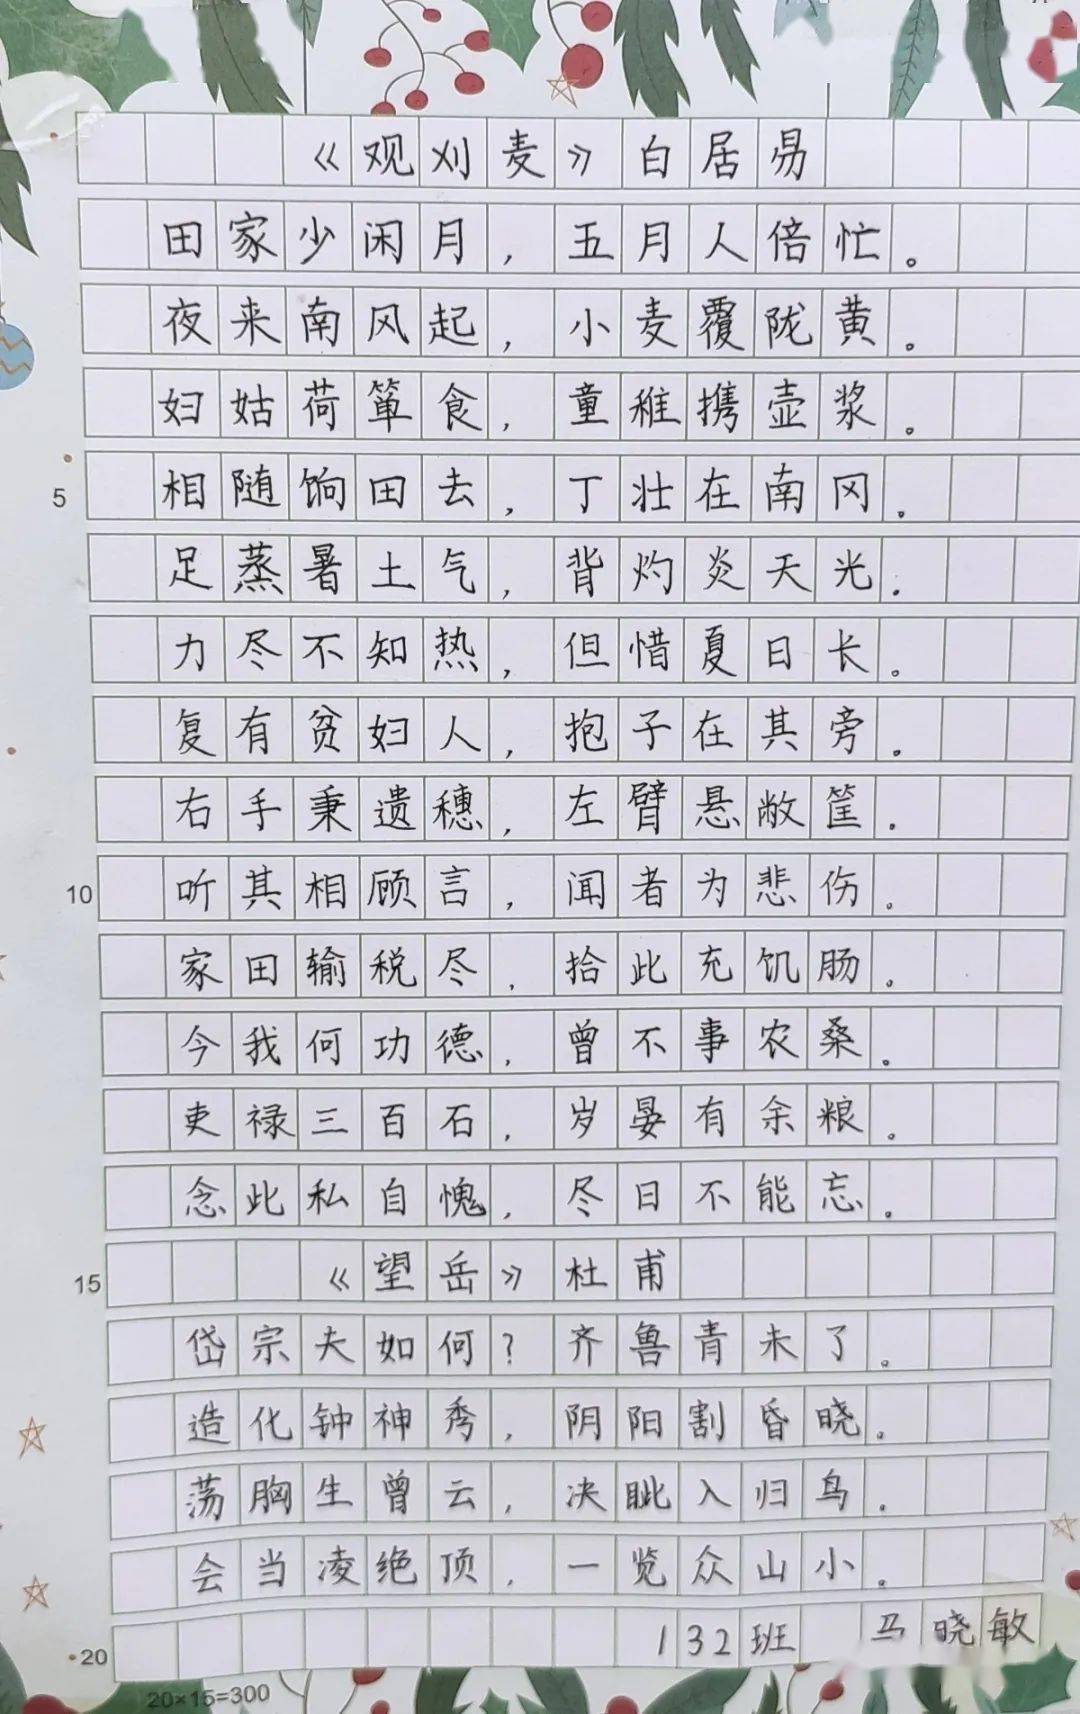 《观刈麦》白居易
田家少闲月，五月人倍忙。
夜来南风起，小麦覆陇黄。
妇姑荷箪食，童稚携壶浆。
5 相随饷田去，丁壮在南冈。
足蒸暑土气，背灼炎天光。
力尽不知热，但惜夏日长。
复有贫妇人，抱子在其旁。
右手秉遗穗，左臂悬敝筐。
10 听其相顾言，闻者为悲伤。
家田输税尽，拾此充饥肠。
今我何功德，曾不事农桑。
吏禄三百石，岁晏有余粮。
念此私自愧，尽日不能忘。
15 《望岳》杜甫
岱宗夫如何？齐鲁青未了。
造化钟神秀，阴阳割昏晓。
荡胸生曾云，决眦入归鸟。
会当凌绝顶，一览众山小。
20 132班 马晓敏
20×15=300